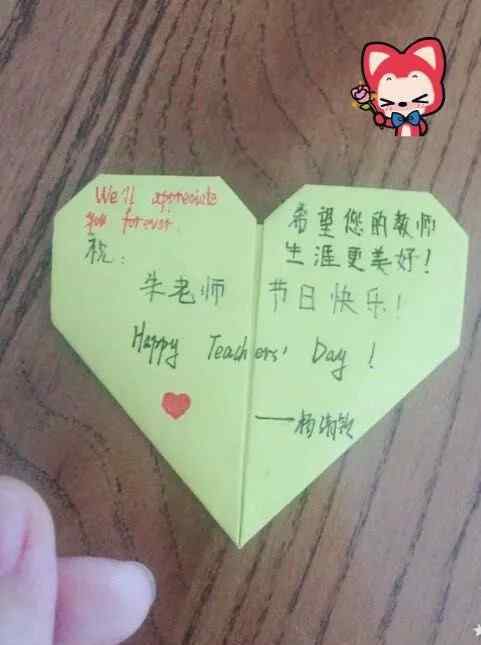 We'll appreciate
you forever.
希望您的教师
生涯更美好!
祝:
朱老师 节日快乐!
Happy Teachers' Day !